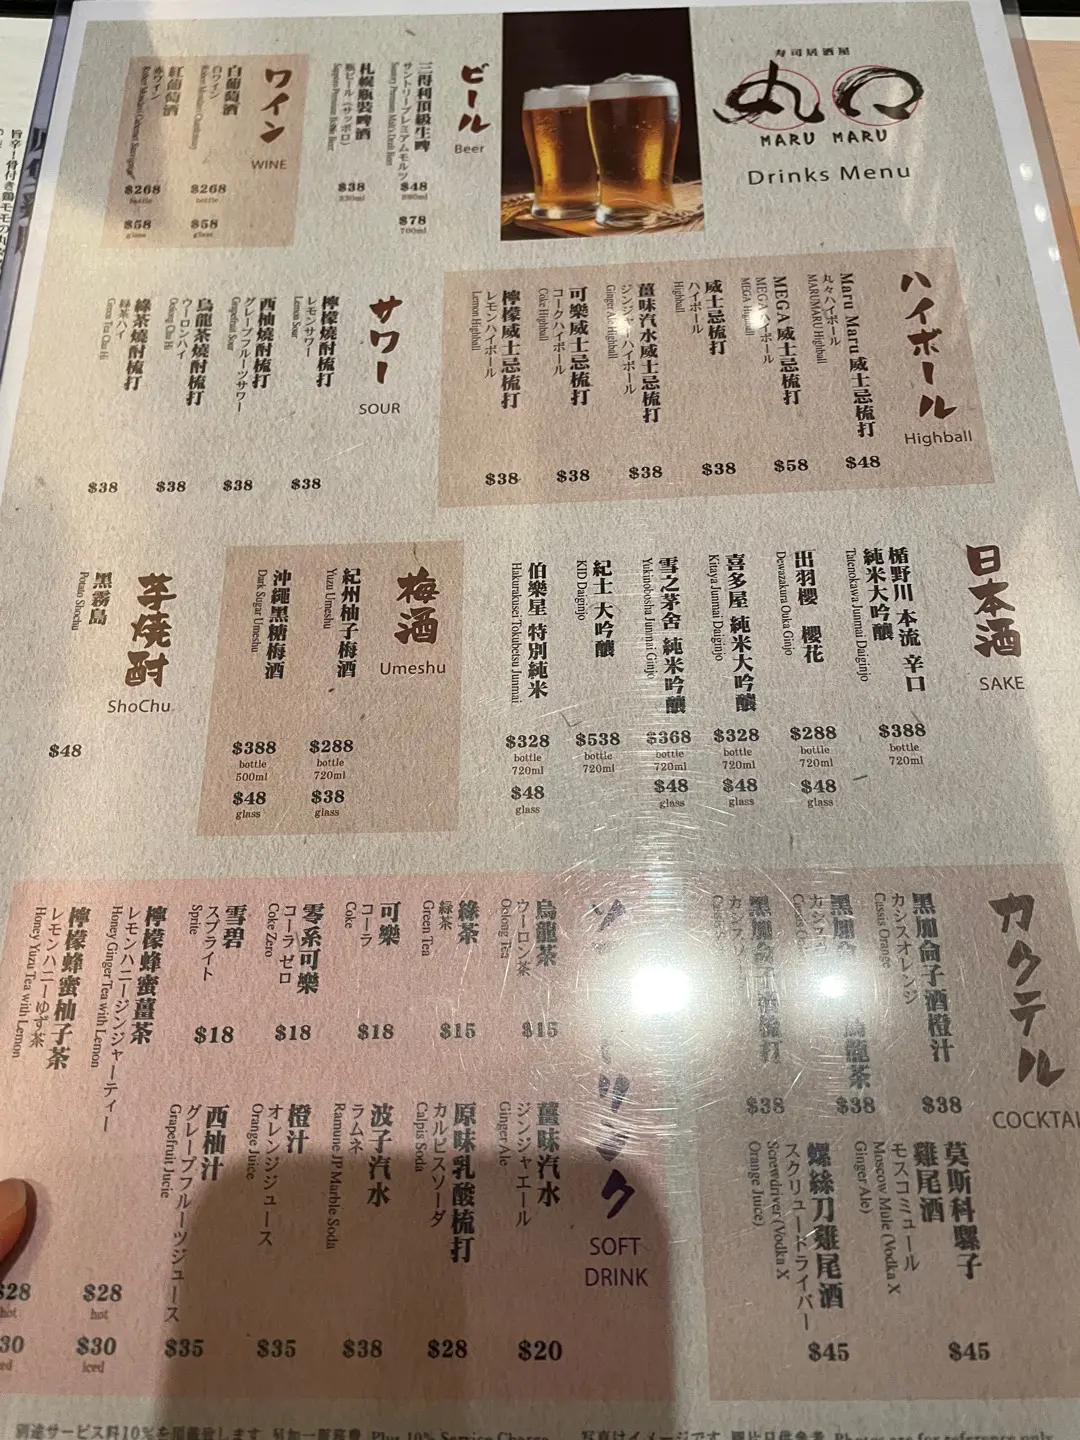 寿司居酒屋
丸丸
MARU MARU
Drinks Menu
ビール
Beer
三得利頂級生啤
サントリープレミアムモルツ
Suntory Premium Malt's Draft Beer
$48
$78
700ml
札幌瓶裝啤酒
瓶ビール (サッポロ)
Sapporo Premium Bottle Beer
$38
330ml
ワイン
WINE
白葡萄酒
白ワイン
$268
bottle
$58
glass
紅葡萄酒
赤ワイン
$268
bottle
$58
glass
ハイボール
Highball
Maru Maru 威士忌梳打
丸々ハイボール
MARUMARU Highball
$48
MEGA 威士忌梳打
MEGA ハイボール
MEGA Highball
$58
威士忌梳打
ハイボール
Highball
$38
薑味汽水威士忌梳打
ジンジャーハイボール
Ginger Ale Highball
$38
可樂威士忌梳打
コークハイボール
Coke Highball
$38
檸檬威士忌梳打
レモンハイボール
Lemon Highball
$38
サワー
SOUR
檸檬燒酎梳打
レモンサワー
Lemon Sour
$38
西柚燒酎梳打
グレープフルーツサワー
Grapefruit Sour
$38
烏龍茶燒酎梳打
ウーロンハイ
Oolong Chu Hi
$38
綠茶燒酎梳打
緑茶ハイ
Green Tea Chu Hi
$38
日本酒
SAKE
楯野川 本流 辛口
純米大吟釀
Tatenokawa Junmai Daiginjo
$388
bottle
720ml
出羽櫻 櫻花
Dewazakura Ouka Ginjo
$288
bottle
720ml
$48
glass
喜多屋 純米大吟釀
Kitaya Junmai Daiginjo
$328
bottle
720ml
$48
glass
雪之茅舍 純米吟釀
Yukinobosha Junmai Ginjo
$368
bottle
720ml
$48
glass
紀土 大吟釀
KID Daiginjo
$538
bottle
720ml
伯樂星 特別純米
Hakurakusei Tokubetsu Junmai
$328
bottle
720ml
$48
glass
梅酒
Umeshu
紀州柚子梅酒
Yuzu Umeshu
$288
bottle
720ml
$38
glass
沖繩黑糖梅酒
Dark Sugar Umeshu
$388
bottle
500ml
$48
glass
芋焼酎
ShoChu
黑霧島
Potato Shochu
$48
カクテル
COCKTAI
黑加侖子酒橙汁
カシスオレンジ
Cassis Orange
$38
黑加侖子 烏龍茶
$38
黑加侖子酒梳打
$38
莫斯科騾子
雞尾酒
モスコミュール
Moscow Mule (Vodka X
Ginger Ale)
$45
螺絲刀雞尾酒
スクリュードライバー
Screwdriver (Vodka X
Orange Juice)
$45
SOFT
DRINK
烏龍茶
ウーロン茶
Oolong Tea
$15
綠茶
緑茶
Green Tea
$15
可樂
コーラ
Coke
$18
零系可樂
コーラ ゼロ
Coke Zero
$18
雪碧
スプライト
Sprite
$18
檸檬蜂蜜薑茶
レモンハニージンジャーティー
Honey Ginger Tea with Lemon
$28
hot
$30
iced
檸檬蜂蜜柚子茶
レモンハニーゆず茶
Honey Yuzu Tea with Lemon
$28
hot
30
ced
薑味汽水
ジンジャエール
Ginger Ale
$20
原味乳酸梳打
カルピスソーダ
Calpis Soda
$28
波子汽水
ラムネ
Ramune JP Marble Soda
$38
橙汁
オレンジジュース
Orange Juice
$35
西柚汁
グレープフルーツジュース
Grapefruit Jucie
$35
別途サービス料10%を頂戴致します 另加一服務費 Plus 10% Service Charge
写真はイメージです 圖片只供參考 Photos are for reference only